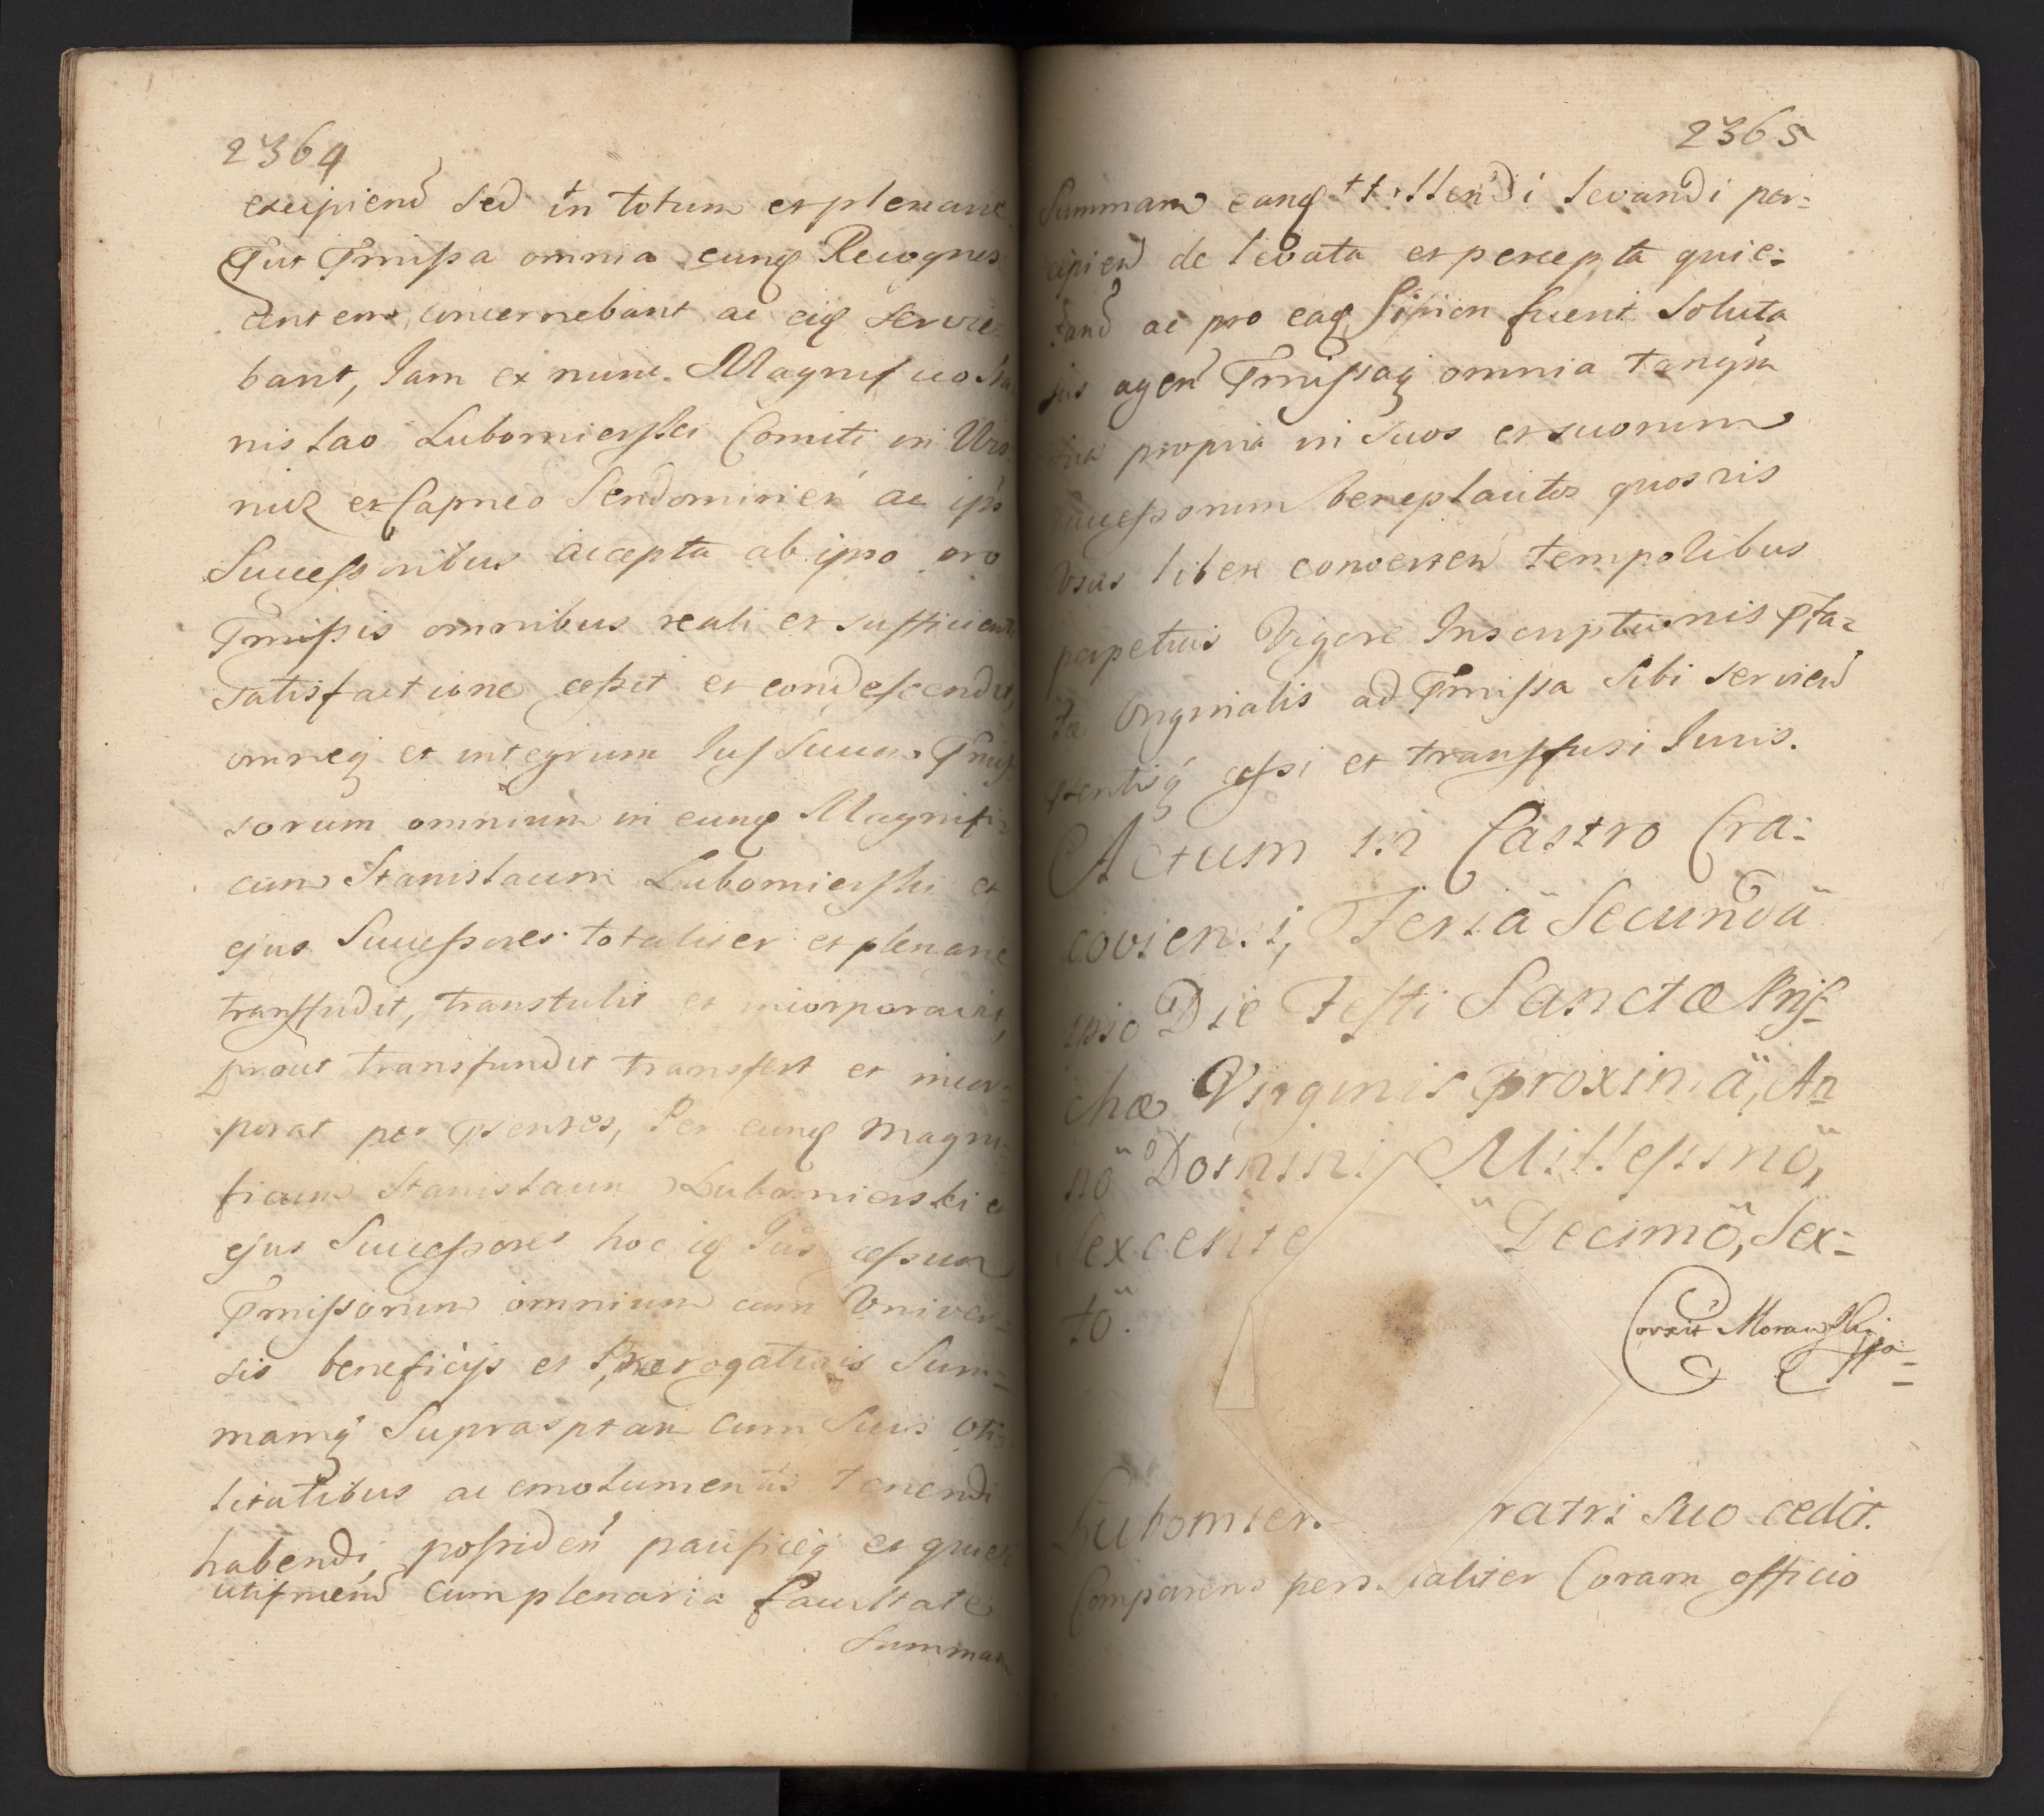 2364
excipiend sed in totum et plenarie
Put Pmissa omnia eunq Recognos
centem, concernebant ac eiq servie
bant, Iam ex nunc Magnifico Sta
nislao Lubomierski Comiti in Wis
nicz et Capneo Sendomirien ac ips
Successoribus accepta ab ipso pro
Pmissis omnibus reali et sufficienti
satisfactione cessit et condescendit,
omneq et integrum Ius Suum Pmis
sorum omnium in eunq Magnifi=
cum Stanislaum Lubomierski et
ejus Successores totaliter et plenarie
transfudit, transtulit et incorporavit,
prout transfundit transfert et incor=
porat per Psentes, Per eunq Magni=
ficum Stanislaum Lubomierski et
ejus Successores hoc iq Ius cessum
Pmissorum omnium cum Univer=
sis beneficijs et Prærogativis Sum=
mamq Suprasptam cum Suis Uti=
litatibus ac emolumentis tenendi
habendi, possiden pacificeq et quiete
utifruend cum plenaria facultate
Summam
2365
Summam eanq tollendi levandi per=
cipien de levata et percepta quie=
tand ac pro eaq Sipien fuerit Soluta
jus agen Pmissaq omnia tanqm
sua propria in Suos et suorum
Successorum beneplacitos quosvis
Usus libere converten tempolibus
perpetuis Vigore Inscriptionis Pfa=
tæ Originalis ad Pmissa Sibi servien
Psentisq cessi et transfusi Iuris.
Actum in Castro Cra=
coviensi, Feriâ Secundâ
ipso Die Festi Sanctæ Pris=
chæ Virginis proximâ, An
nô Domini Millessimô,
Sexcente Decimô, Sex=
tô.
Correxit Morawski
Lubomiers ratri Suo cedit.
Comparens personaliter Coram officio